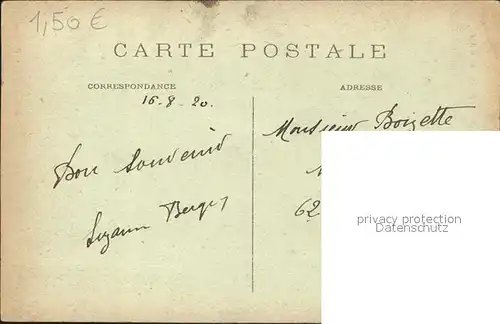 1,50 €
CARTE POSTALE
CORRESPONDANCE
ADRESSE
16-8-20.
Monsieur Boizette
Bon souvenir
62
Suzann Berges
privacy protection
Datenschutz